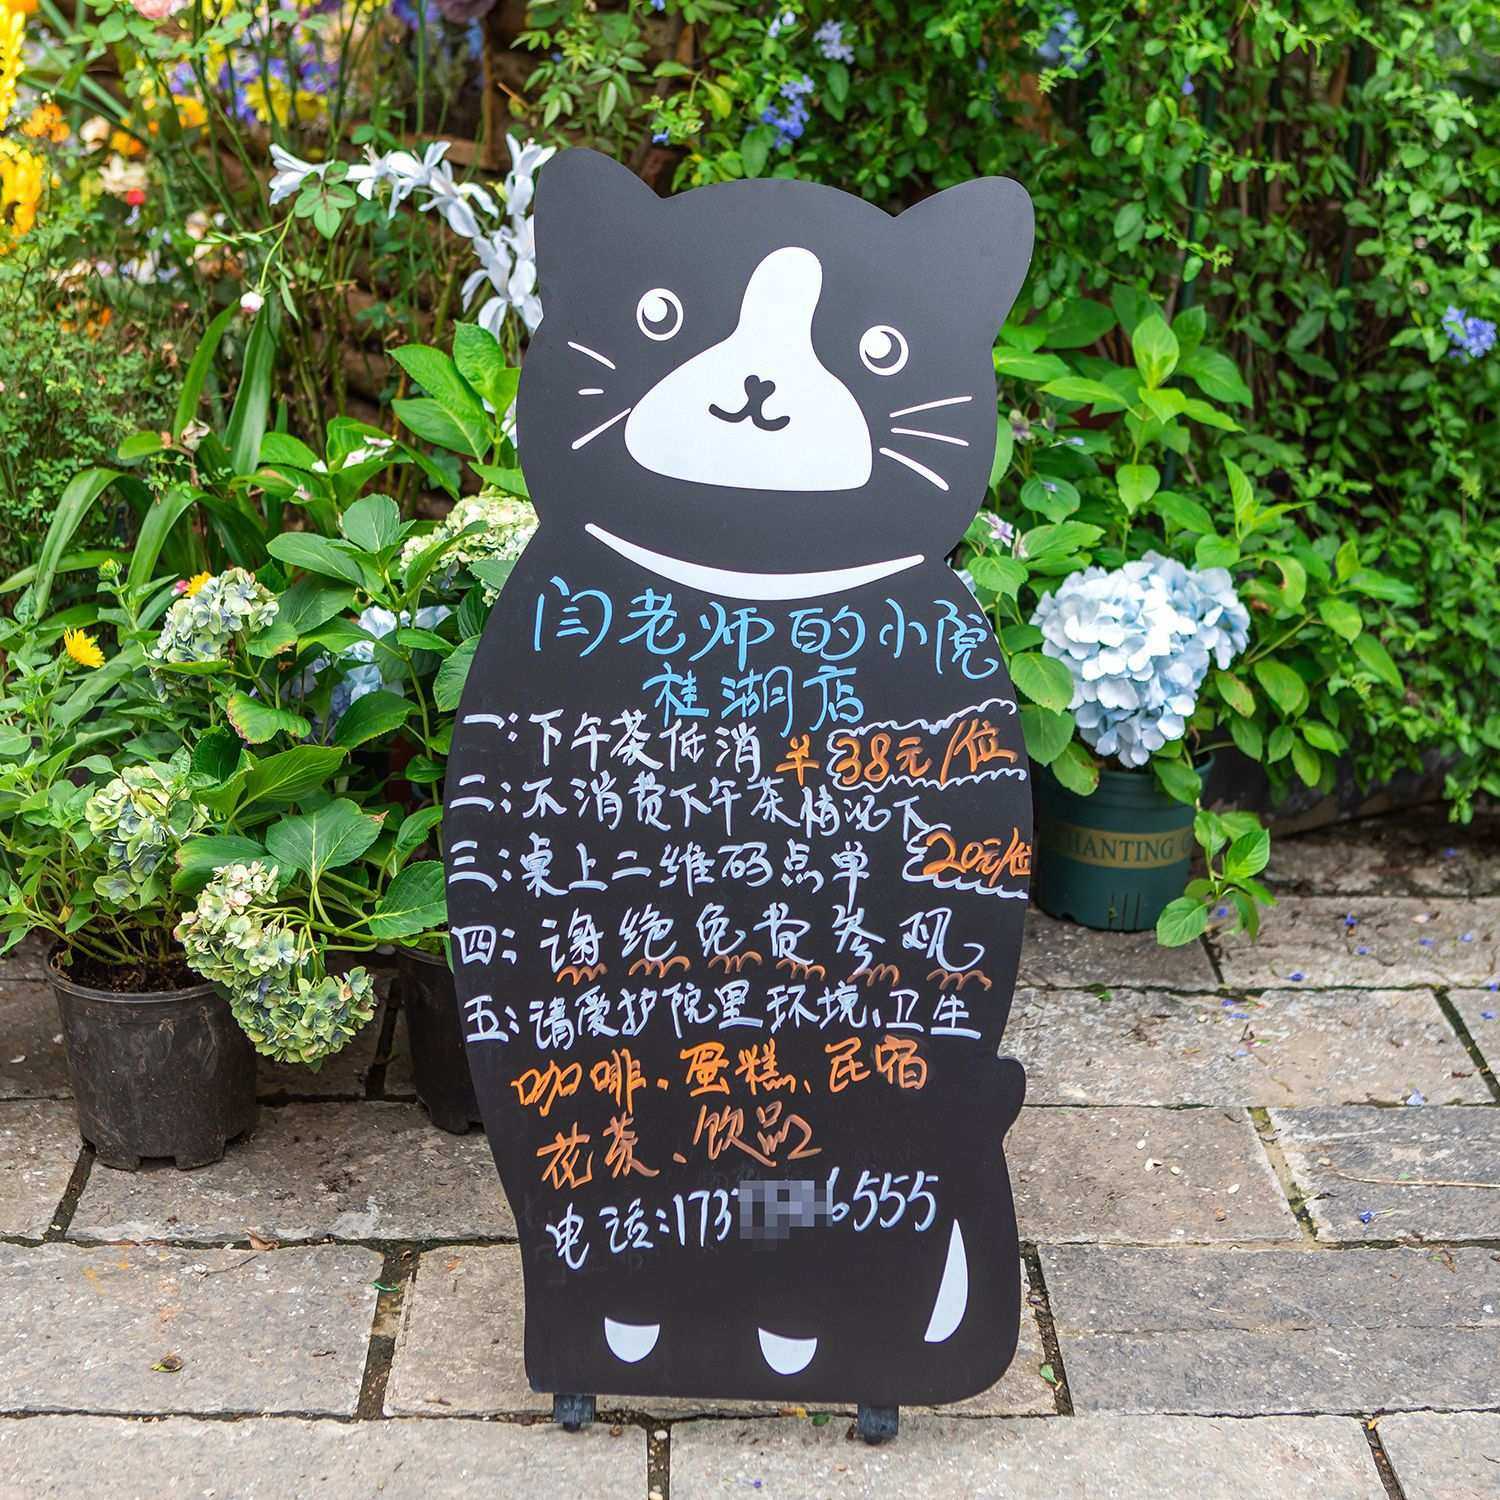 闫老师的小院
桂湖店
一:下午茶低消半38元/位
二:不消费下午茶情况下
20元/位
三:桌上二维码点单
四:谢绝免费参观
五:请爱护院里环境、卫生
咖啡、蛋糕、民宿
花茶、饮品
电话:173 6555
HANTING